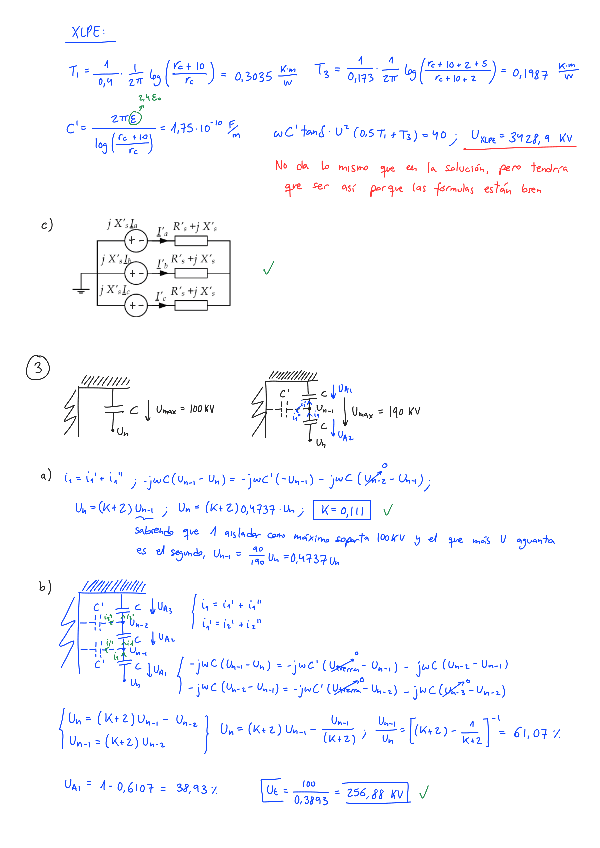 XLPE:
T₁ = 1/0,4 · 1/2π log((rc+10)/rc) = 0,3035 K·m/W   T₃ = 1/0,173 · 1/2π log((rc+10+2+5)/(rc+10+2)) = 0,1987 K·m/W
2,4ε₀
C' = 2πε/log((rc+10)/rc) = 1,75·10⁻¹⁰ F/m   ωC' tanδ · U² (0,5T₁ + T₃) = 40 ; U_XLPE = 3928,9 KV
No da lo mismo que en la solución, pero tendría
que ser así porque las fórmulas están bien
c)
j X'ₛIₐ I'ₐ R'ₛ+j X'ₛ
j X'ₛI_b I'_b R'ₛ+j X'ₛ
j X'ₛI_c I'_c R'ₛ+j X'ₛ
✓
3
C ↓ Umax = 100 KV
Un
C' C ↓ UA1
i₁' i₁'' Un-1 ↓ Umax = 190 KV
i₁ C ↓ UA2
Un
a) i₁ = i₁' + i₁'' ; -jωC(Un-1 - Un) = -jωC'(-Un-1) - jωC(Un-2 - Un-1) ; 0
Un = (K+2) Un-1 ; Un = (K+2) 0,4737 · Un ; K = 0,111 ✓
sabiendo que 1 aislador como máximo soporta 100KV y el que más U aguanta
es el segundo, Un-1 = 90/190 Un = 0,4737 Un
b)
C' C ↓ UA3
Un-2
C ↓ UA2
Un-1
C' C ↓ UA1
Un
i₁ = i₁' + i₁''
i₁' = i₂' + i₂''
-jωC(Un-1 - Un) = -jωC'(Utierra - Un-1) - jωC(Un-2 - Un-1) 0
-jωC(Un-2 - Un-1) = -jωC'(Utierra - Un-2) - jωC(Un-3 - Un-2) 0 0
Un = (K+2) Un-1 - Un-2
Un-1 = (K+2) Un-2
Un = (K+2) Un-1 - Un-1/(K+2) ; Un-1/Un = [(K+2) - 1/(K+2)]⁻¹ = 61,07 %
UA1 = 1 - 0,6107 = 38,93 %   UE = 100/0,3893 = 256,88 KV ✓